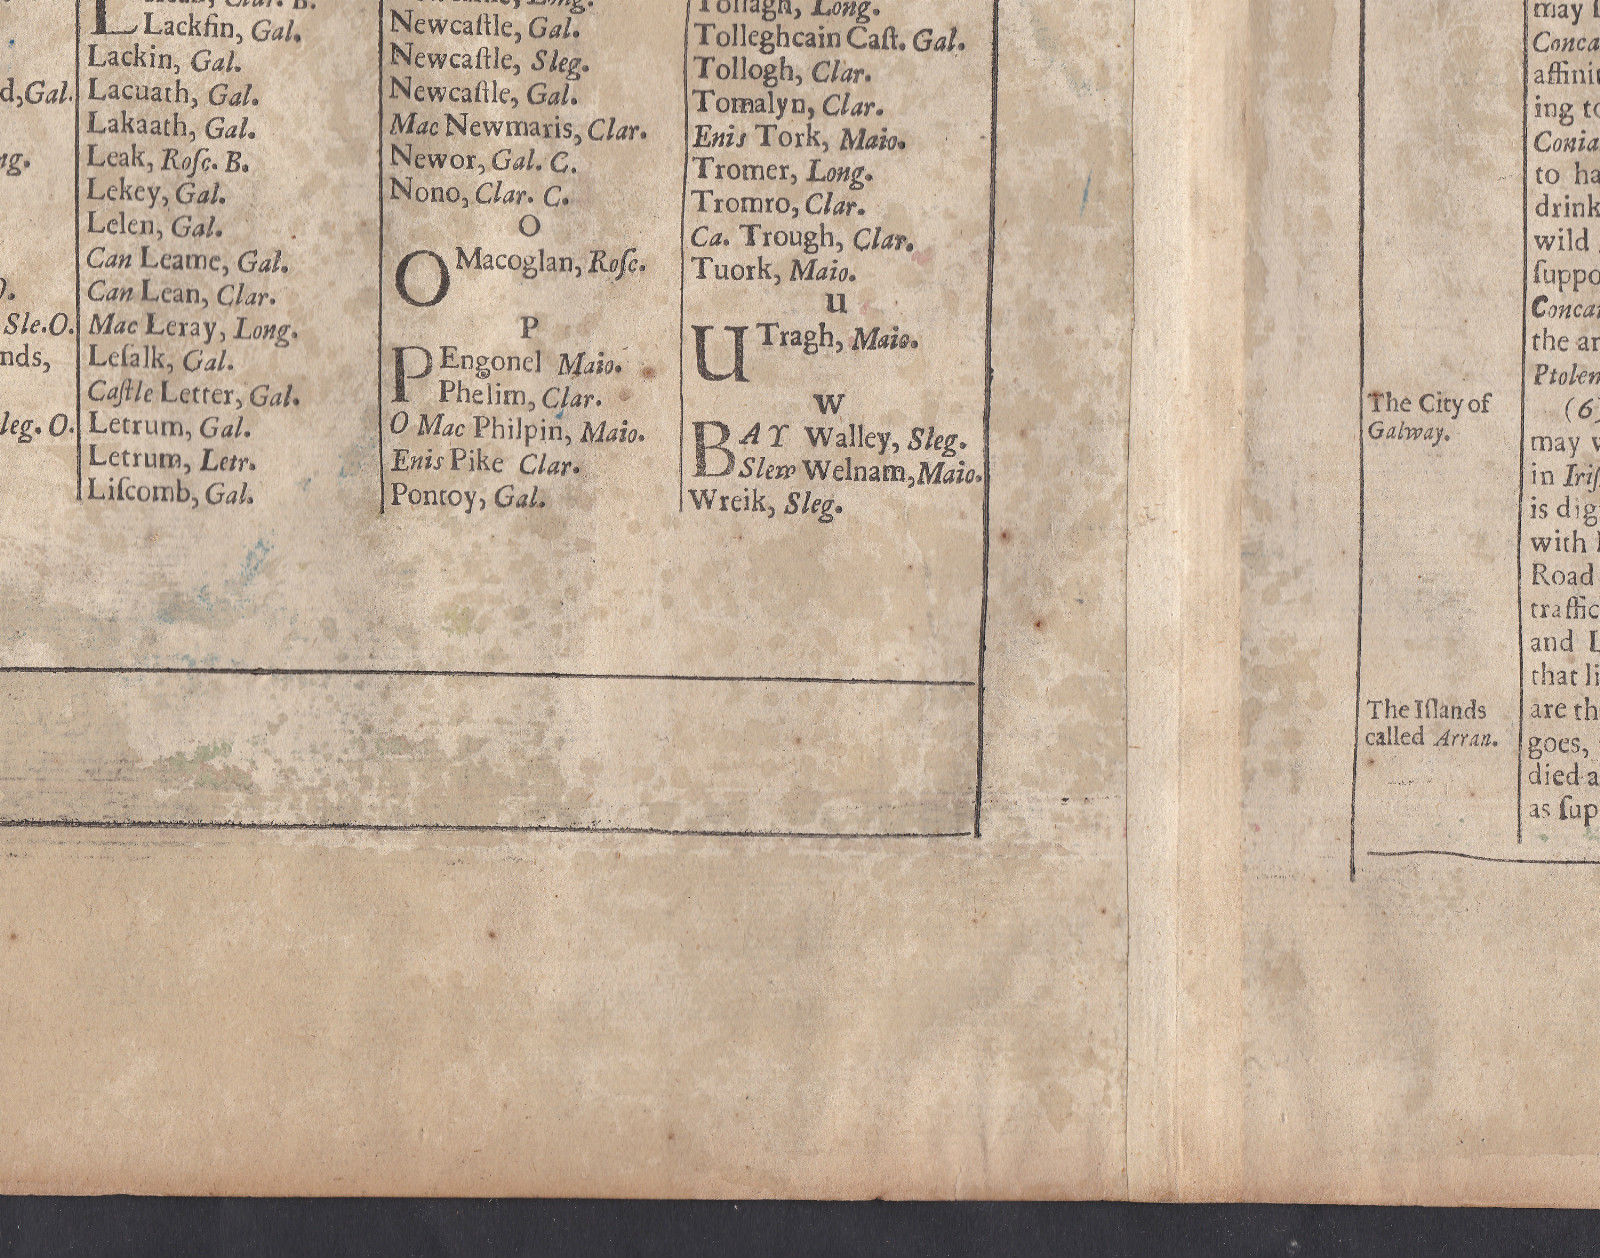 d, Gal.
ng.
O.
Sle. O.
nds,
leg. O.
Lackfin, Gal.
Lackin, Gal.
Lacuath, Gal.
Lakaath, Gal.
Leak, Roſc. B.
Lekey, Gal.
Lelen, Gal.
Can Leame, Gal.
Can Lean, Clar.
Mac Leray, Long.
Leſalk, Gal.
Caſtle Letter, Gal.
Letrum, Gal.
Letrum, Letr.
Liſcomb, Gal.
Newcaſtle, Gal.
Newcaſtle, Sleg.
Newcaſtle, Gal.
Mac Newmaris, Clar.
Newor, Gal. C.
Nono, Clar. C.
O
OMacoglan, Roſc.
P
PEngonel Maio.
Phelim, Clar.
O Mac Philpin, Maio.
Enis Pike Clar.
Pontoy, Gal.
Tollagh, Long.
Tolleghcain Caſt. Gal.
Tollogh, Clar.
Tomalyn, Clar.
Enis Tork, Maio.
Tromer, Long.
Tromro, Clar.
Ca. Trough, Clar.
Tuork, Maio.
U
UTragh, Maio.
W
BAY Walley, Sleg.
Slew Welnam, Maio.
Wreik, Sleg.
The City of
Galway.
The Iſlands
called Arran.
may
Conca
affini
ing to
Conia
to ha
drink
wild
ſuppo
Conca
the ar
Ptolem
(6)
may
in Iriſ
is dig
with
Road
traffic
and L
that li
are th
goes,
died a
as ſup